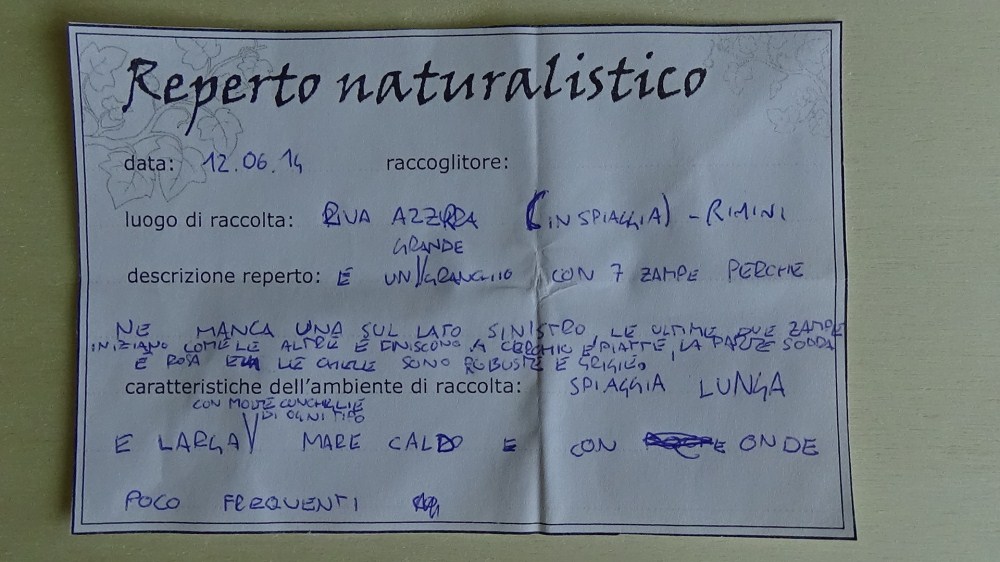 Reperto naturalistico
data: 12.06.14 raccoglitore:
luogo di raccolta: RIVA AZZURRA (IN SPIAGGIA) - RIMINI
GRANDE
descrizione reperto: E UN GRANCHIO CON 7 ZAMPE PERCHE
NE MANCA UNA SUL LATO SINISTRO, LE ULTIME DUE ZAMPE
INIZIANO COME LE ALTRE E FINISCONO A CERCHIO E PIATTE, LA PARTE SODDA
E ROSA E LE CHELE SONO ROBUSTE E GRIGIE.
caratteristiche dell'ambiente di raccolta: SPIAGGIA LUNGA
CON MOLTE CONCHIGLIE
DI OGNI TIPO
E LARGA MARE CALDO E CON ONDE
POCO FREQUENTI